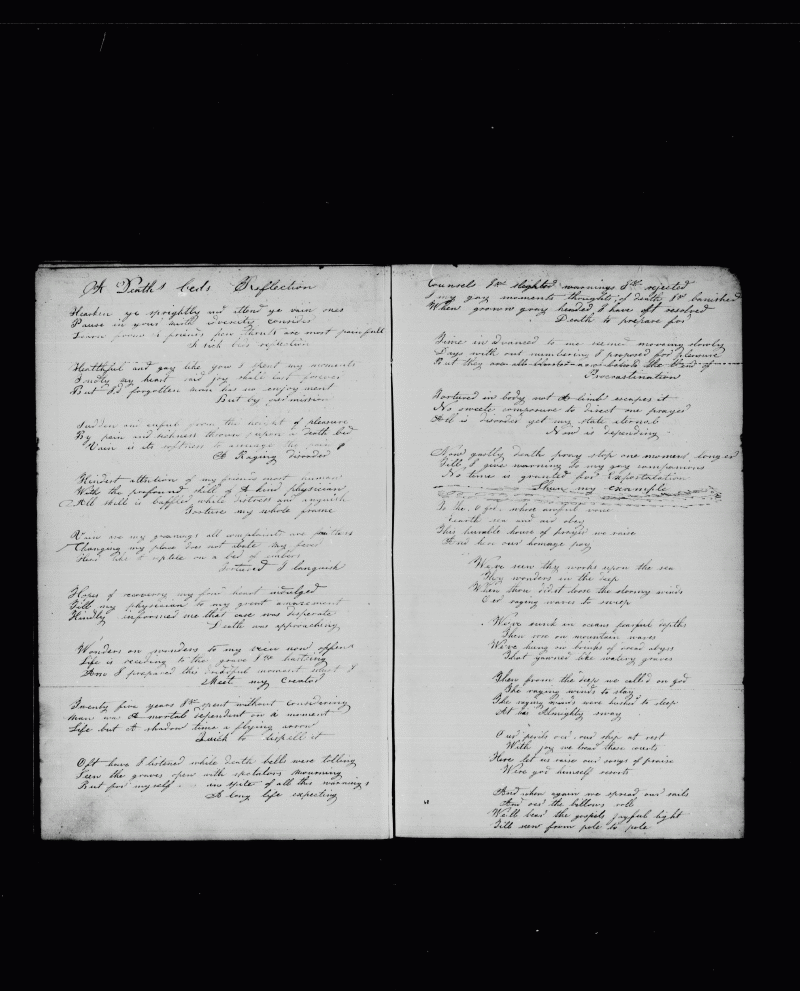 A Death's beds Reflection
Hearken ye sprightly and attend ye vain ones
Pause in your mirth consider
Learn from a friend's how are most painfull
A sick bed reflection
Healthful and gay like you I spent my moments
Fondly my heart said joy shall last forever
But I'd forgotten man has no enjoy ment
But by permission
Sudden and awful from the height of pleasure
By pain and sickness thrown upon a death bed
Vain is its softness to the pain
A Raging disorder
Kindest attention of my friends
With the profound skill of A kind physician
All skill is baffled while distress and anguish
Torture my whole frame
Vain are my groanings all complaints are fruitless
Changing my place does not abate my fever
Here like a upon a bed of embers
Tortured I languish
Hopes of recovery my fond heart indulged
Till my physician to my great amazement
Kindly informed me that case was desperate
Death was approaching
Wonders on wonders to my view now offers
Life is receding to the grave I'm hasting
Am I prepared this dreadful moment must I
Meet my Creator
Twenty five years I've spent without considering
Man was A mortal dependent on a moment
Life but A shadow time a flying arrow
Quick to
Oft have I listened while death bells were tolling
Seen the graves open with spectators mourning
But for myself in spite of all this warnings
A long life expecting
Counsels I've slighted warnings I've rejected
In my gay moments thoughts of death I've banished
When grown gray headed I have oft resolved
Death to prepare for
Time in advanced to me seemed moving slowly
Days with out numbering I proposed for pleasure
But they are all blasted
Procrastination
Tortured in body not A limb escapes it
No sweete composure to direct one prayer
All is disorder yet my state eternal
Now is depending
Now gastly death pray stop one moment longer
Till I give warning to my gay companions
No time is granted for Expostulation
Shun my example
To the, O god, whose awful voice
Earth sea and air obey
This humble house of prayer we raise
And here our homage pay
We've seen thy works upon the sea
Thy wonders in the deep
When thou didst loose the stormy winds
Oer raging waves to sweep
We've sunk in oceans fearful depths
Then rose on mountain waves
We've hung on brinks of ocean abyss
That yawned like watery graves
Then from the deep we called on god
The raging winds to stay
The raging winds were hushed to sleep
At his Almighty sway
Our perils oer our ship at rest
With joy we tread these courts
Here let us raise our songs of praise
Were god himself resorts
And when again we spread our sails
And oer the billows roll
We'll bear the gospels joyful light
Till seen from pole to pole